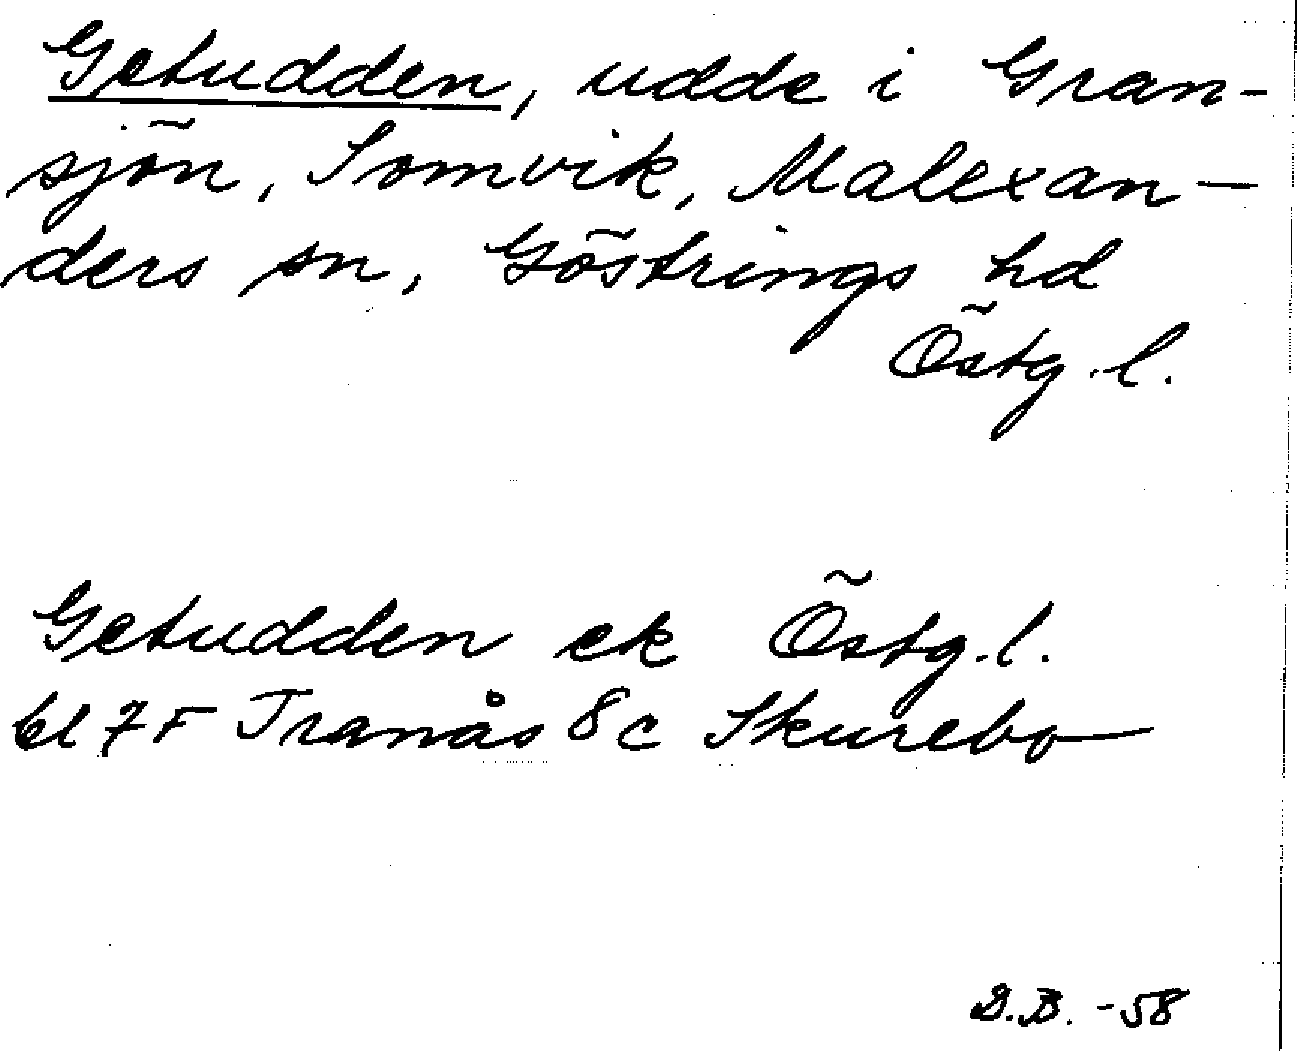 Getudden, udde i Gran-
sjön, Somvik, Malexan-
ders sn, Göstrings hd
Östg. l.
Getudden ek Östg. l.
bl 7F Tranås 8c Skurebo
D.B. -58